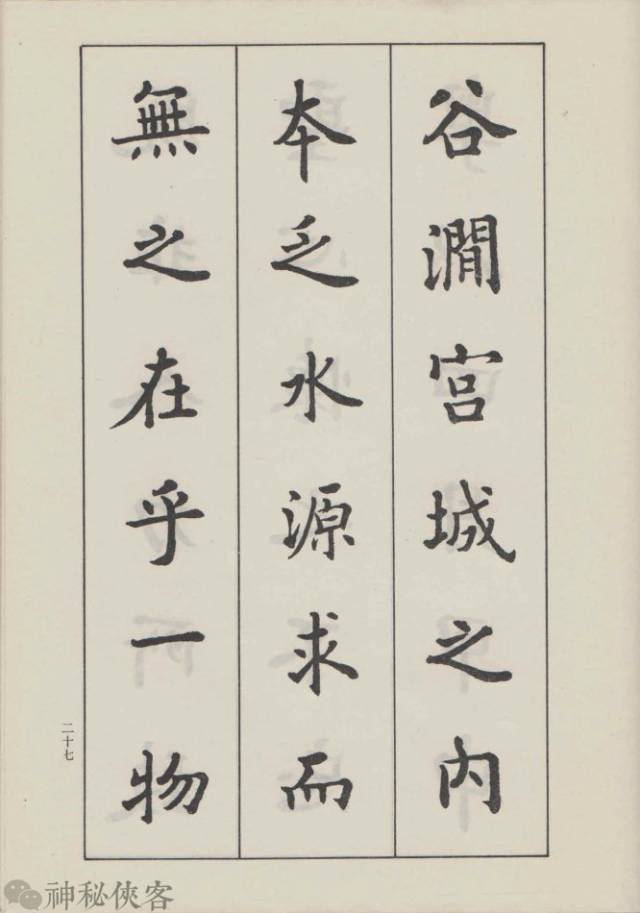 谷澗宮城之內
本乏水源求而
無之在乎一物
二十七
神秘俠客